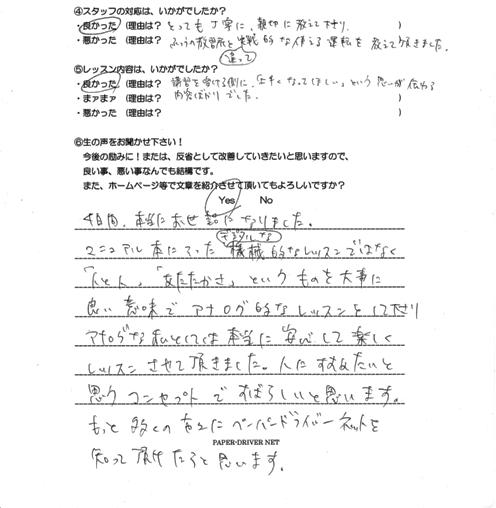 ④スタッフの対応は、いかがでしたか？
・良かった （理由は？ とっても丁寧に、親切に教えて下さり、 ）
・悪かった （理由は？ ふつうの教習所と違って実戦的な使える運転を教えて頂きました。
⑤レッスン内容は、いかがでしたか？
・良かった （理由は？ 講習を受ける側に、上手くなってほしい、という思いが伝わる ）
・まァまァ （理由は？ 内容ばかりでした。 ）
・悪かった （理由は？ ）
⑥生の声をお聞かせ下さい！
今後の励みに！または、反省として改善していきたいと思いますので、
良い事、悪い事なんでも結構です。
また、ホームページ等で文章を紹介させて頂いてもよろしいですか？
Yes No
4日間、本当にお世話になりました。
デジタルな
マニュアル本にそった機械的なレッスンではなく
「人と人」、「あたたかさ」というものを大事に
良い意味でアナログ的なレッスンをして下さり
アナログな私としては本当に安心して楽しく
レッスンさせて頂きました。人にすすめたいと
思うコンセプトですばらしいと思います。
もっと多くの方々にペーパードライバーネットを
PAPER-DRIVER NET
知って頂けたらと思います。